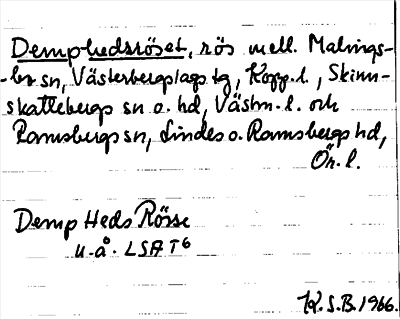 Demp-hedsröset, rös mell. Malings-
-bo sn, Västerbergslags tg, Kopp.l., Skinn-
skattebergs sn o. hd, Västm.l. och
Ramsbergs sn, Lindes o. Ramsbergs hd,
Ör. l.
Demp Heds Rörse
u.å. LSA T6
K.S.B. 1966.